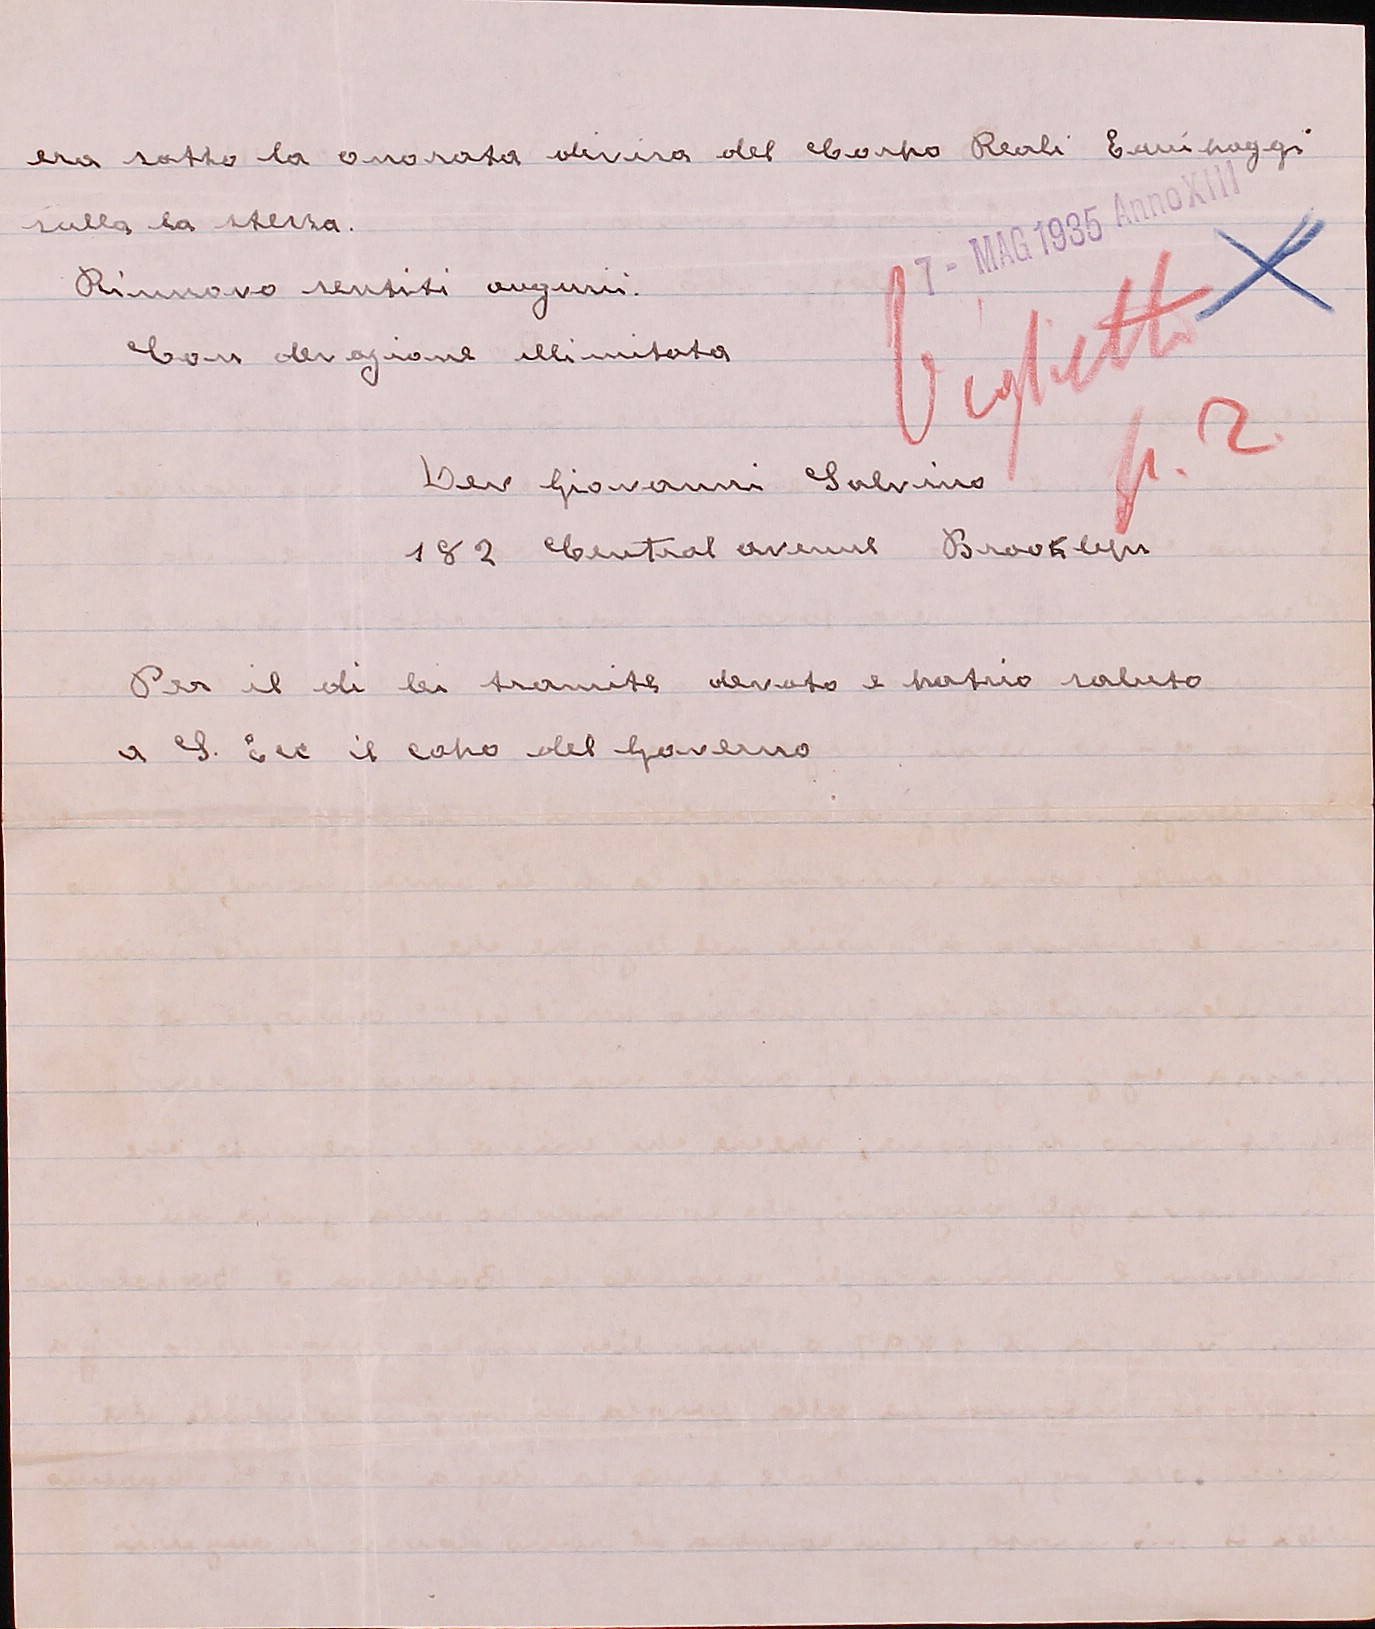 era sotto la onorata divisa del Corpo Reali Equipaggi
sulla la stessa.
7 - MAG 1935 Anno XIII
Rinnovo sentiti augurii.
Biglietto
Con devozione illimitata
p. 2
Dev Giovanni Salvino
182 Central avenue Brooklyn
Per il di lei tramite devoto e patrio saluto
a S. Ecc il capo del Governo